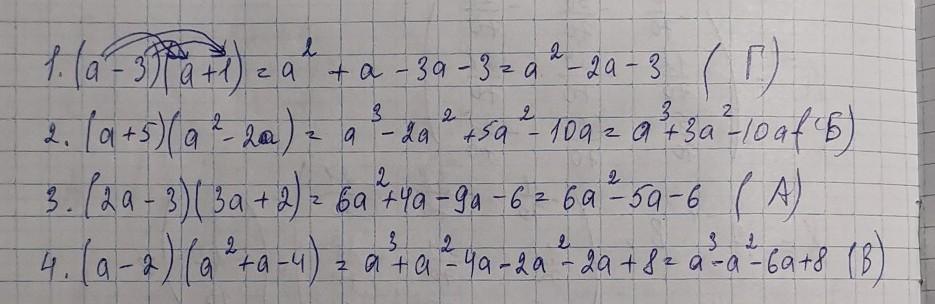 1. (a - 3)(a + 1) = a² + a - 3a - 3 = a² - 2a - 3 (Г)
2. (a + 5)(a² - 2a) = a³ - 2a² + 5a² - 10a = a³ + 3a² - 10a (Б)
3. (2a - 3)(3a + 2) = 6a² + 4a - 9a - 6 = 6a² - 5a - 6 (А)
4. (a - 2)(a² + a - 4) = a³ + a² - 4a - 2a² - 2a + 8 = a³ - a² - 6a + 8 (В)